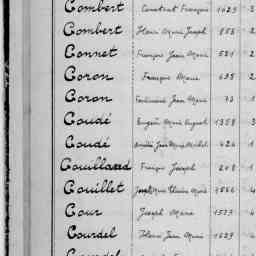 Gombert Constant François 1023 3
Gombert Henri Marie Joseph 558 2
Gonnet François Jean Marie 581 2
Goron François Marie 695 2
Goron Ferdinand Jean Marie 73 1
Goudé Eugène Marie August 1358 3
Goudé Marie Michel 424 1
Gouillard François Joseph 208 1
Gouillet Marie 1566 4
Gour Joseph Marie 1573 4
Gourdel Henri Jean Marie 1629 4